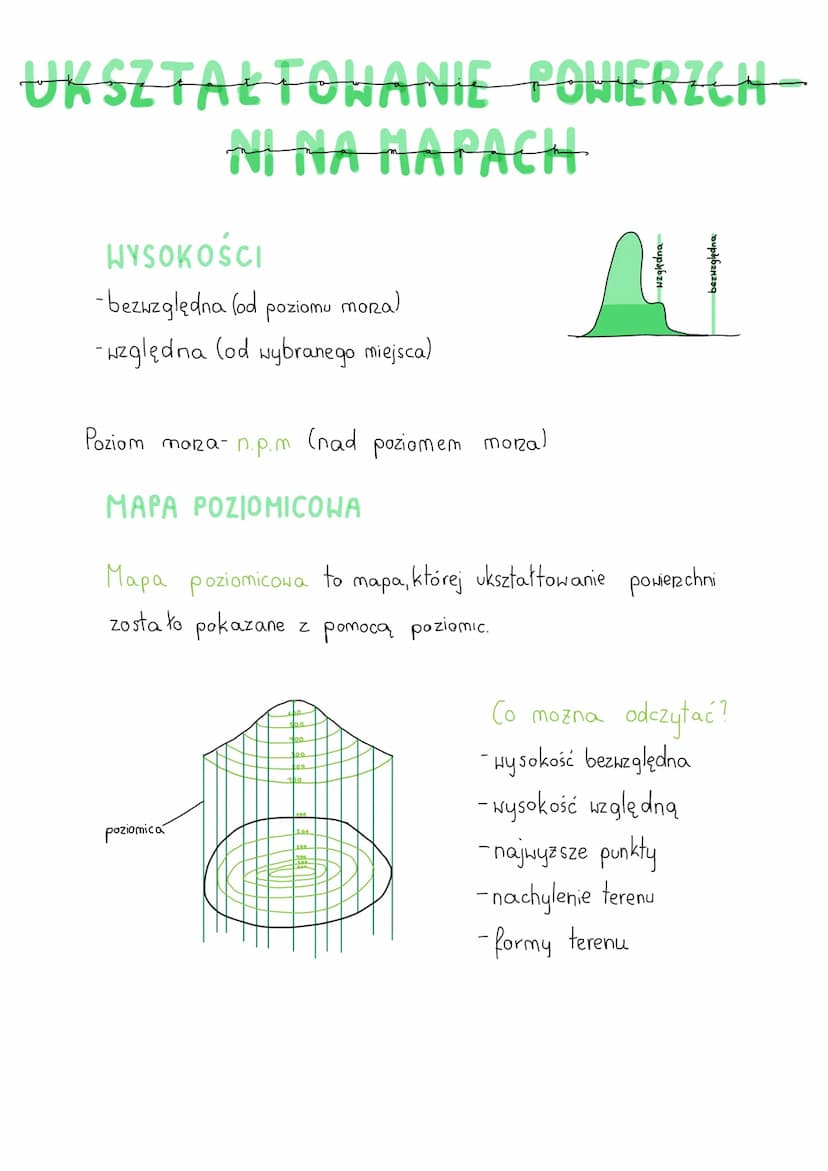 UKSZTAŁTOWANIE POWIERZCH-
NI NA MAPACH
WYSOKOŚCI
-bezwzględna (od poziomu morza)
-względna (od wybranego miejsca)
względna
bezwzględna
Poziom morza- n.p.m (nad poziomem morza)
MAPA POZIOMICOWA
Mapa poziomicowa to mapa, której ukształtowanie powierzchni
zostało pokazane z pomocą poziomic.
Co można odczytać?
-wysokość bezwzględna
-wysokość względną
-najwyższe punkty
-nachylenie terenu
-formy terenu
poziomica